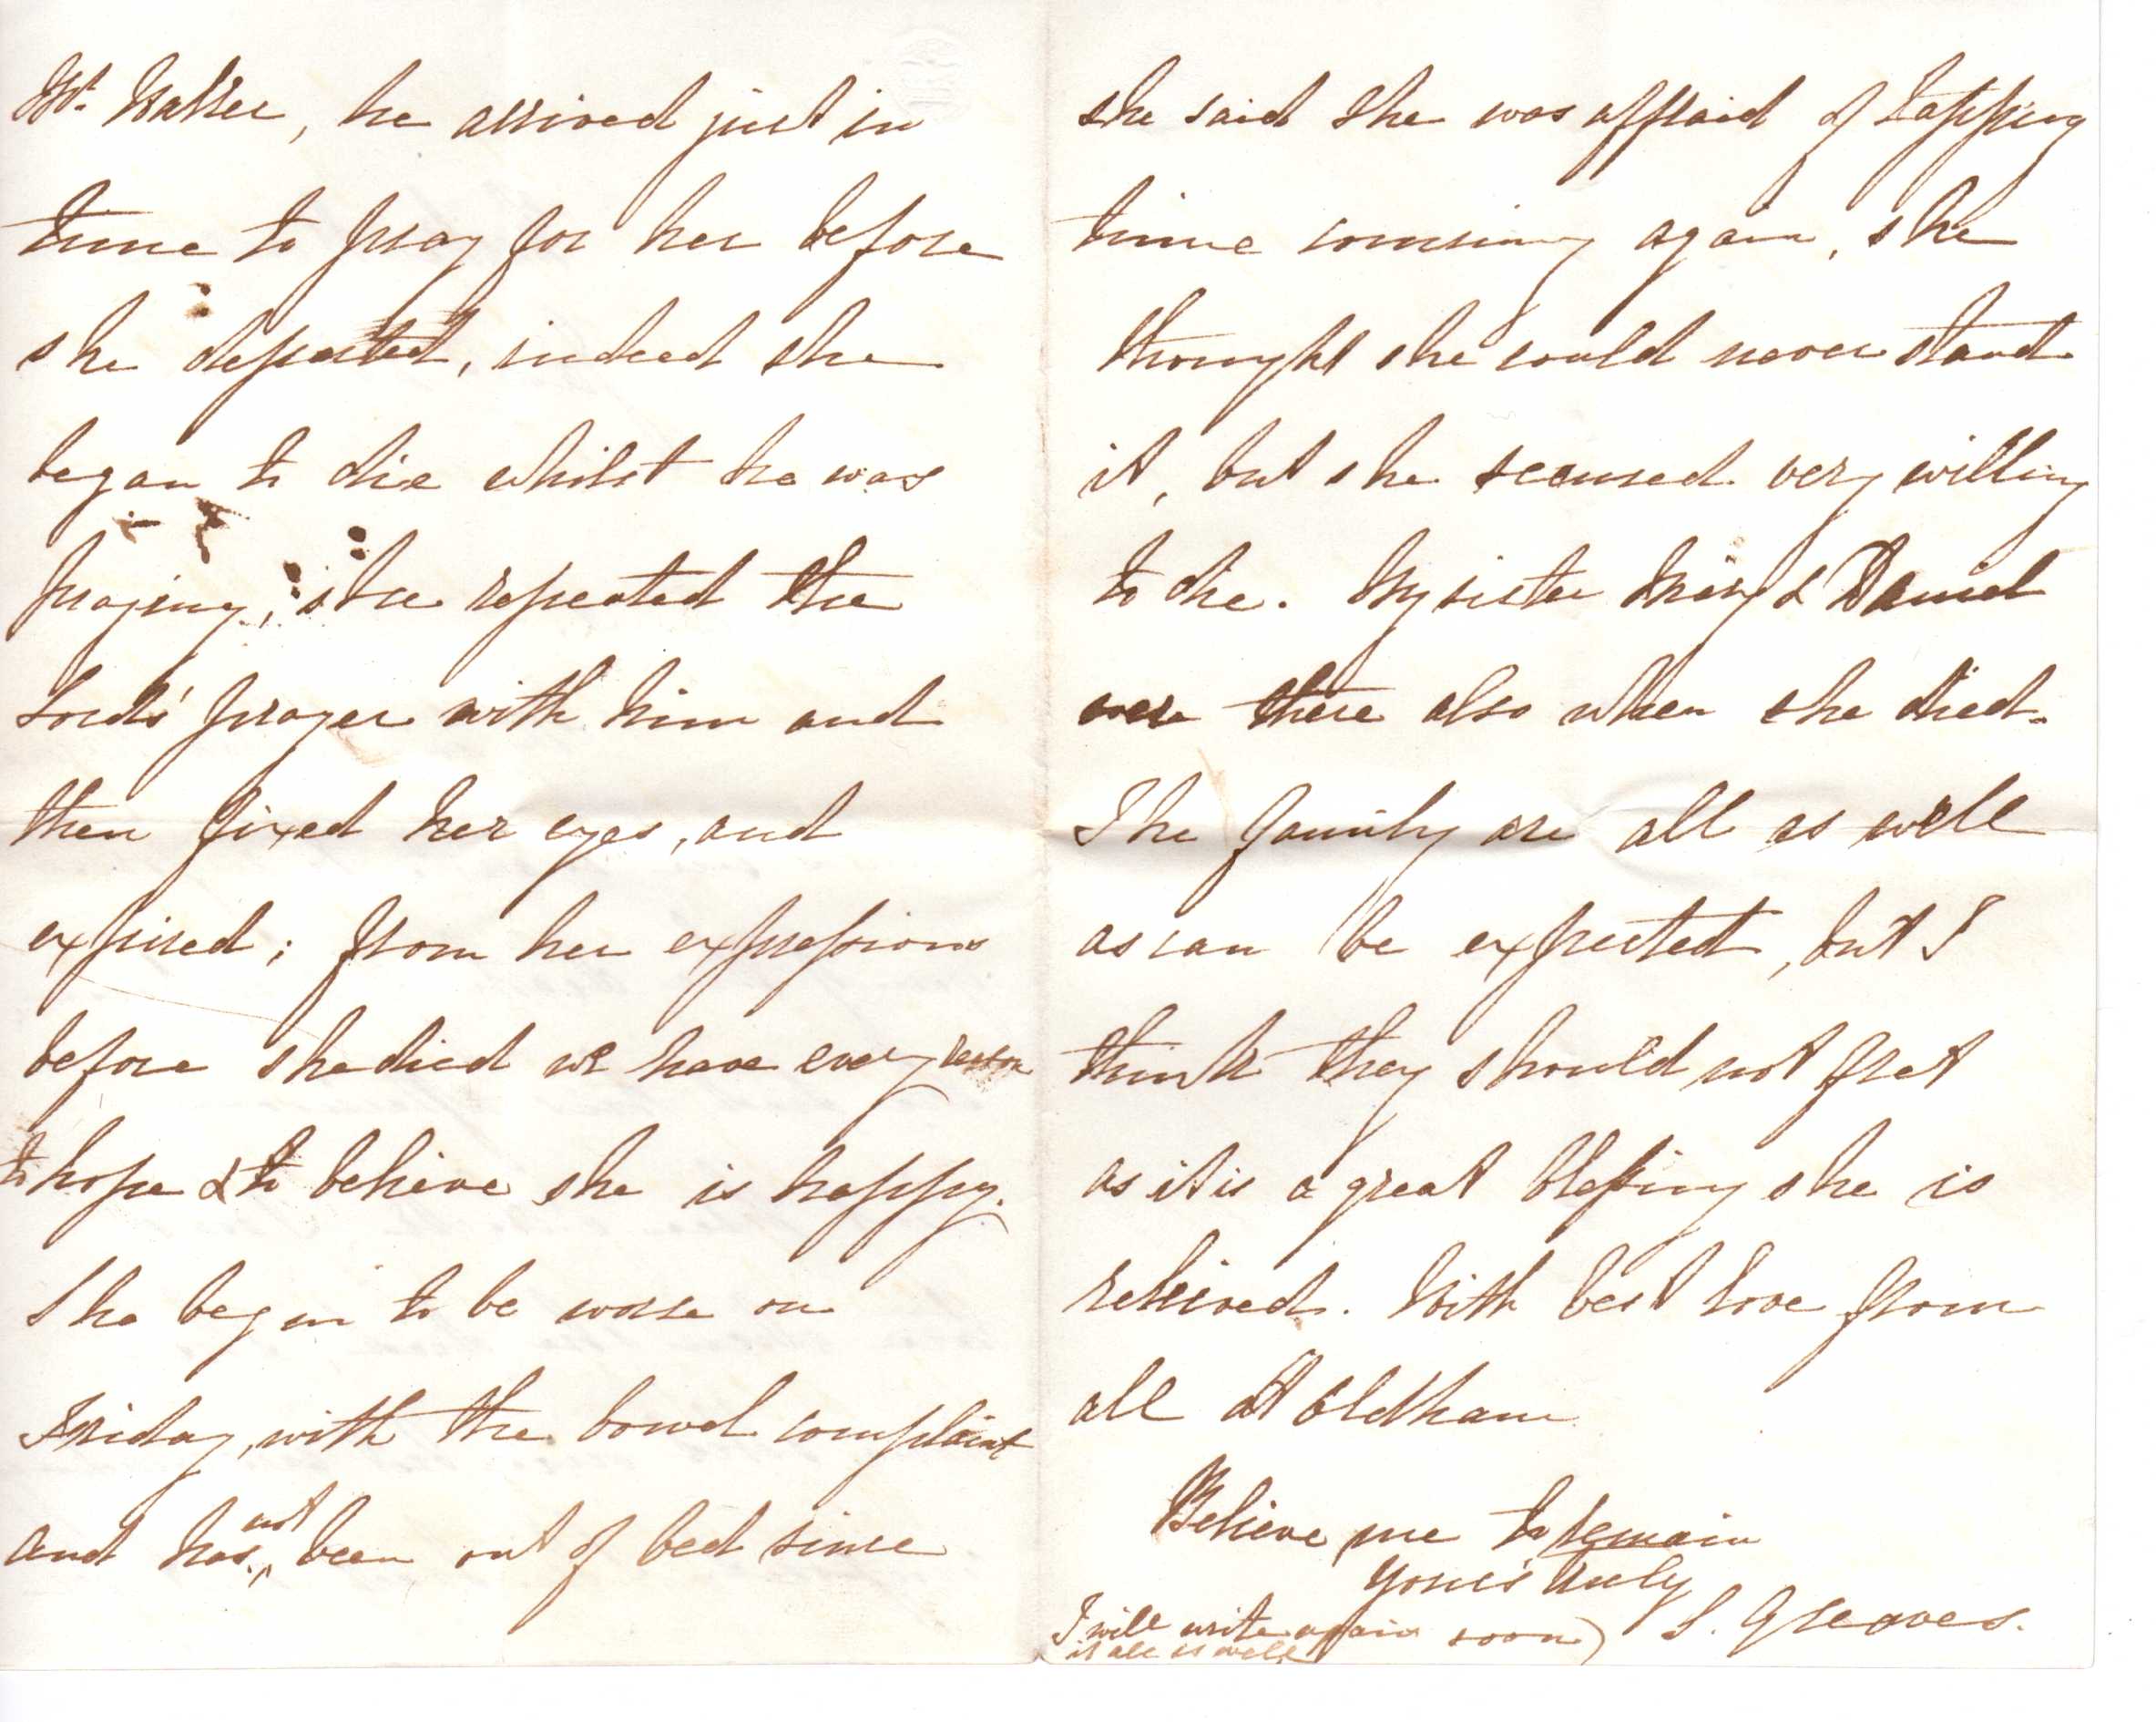 Mr. Walker, he arrived just in
time to pray for her before
she departed, indeed she
began to die whilst he was
praying, she repeated the
Lords' prayer with him and
then fixed her eyes, and
expired; from her expressions
before she died we have every reason
to hope & to believe she is happy.
She begun to be worse on
Friday, with the bowel complaint
and has not been out of bed since
she said she was affraid of tapping
time comeing again, she
thought she could never stand
it, but she seemed very willing
to die. My sister Mary & Daniel
were there also when she died.
The family are all as well
as can be expected, but I
think they should not fret
as it is a great blessing she is
releived. With best love from
all at Oldham
Believe me to remain
Your's truly
S. Greaves.
I will write again soon)
is all is well